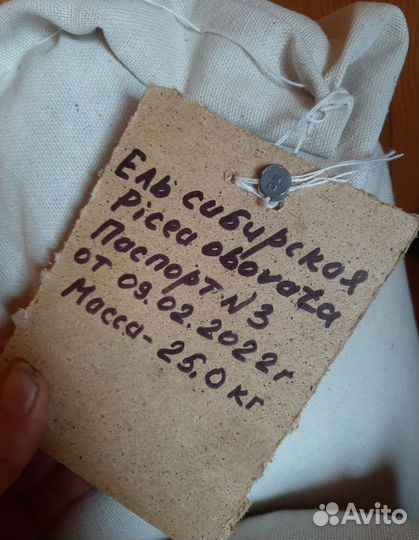 Ель сибирская
Picea obovata
Паспорт N3
от 09.02.2022г
Масса- 25,0 кг
Avito